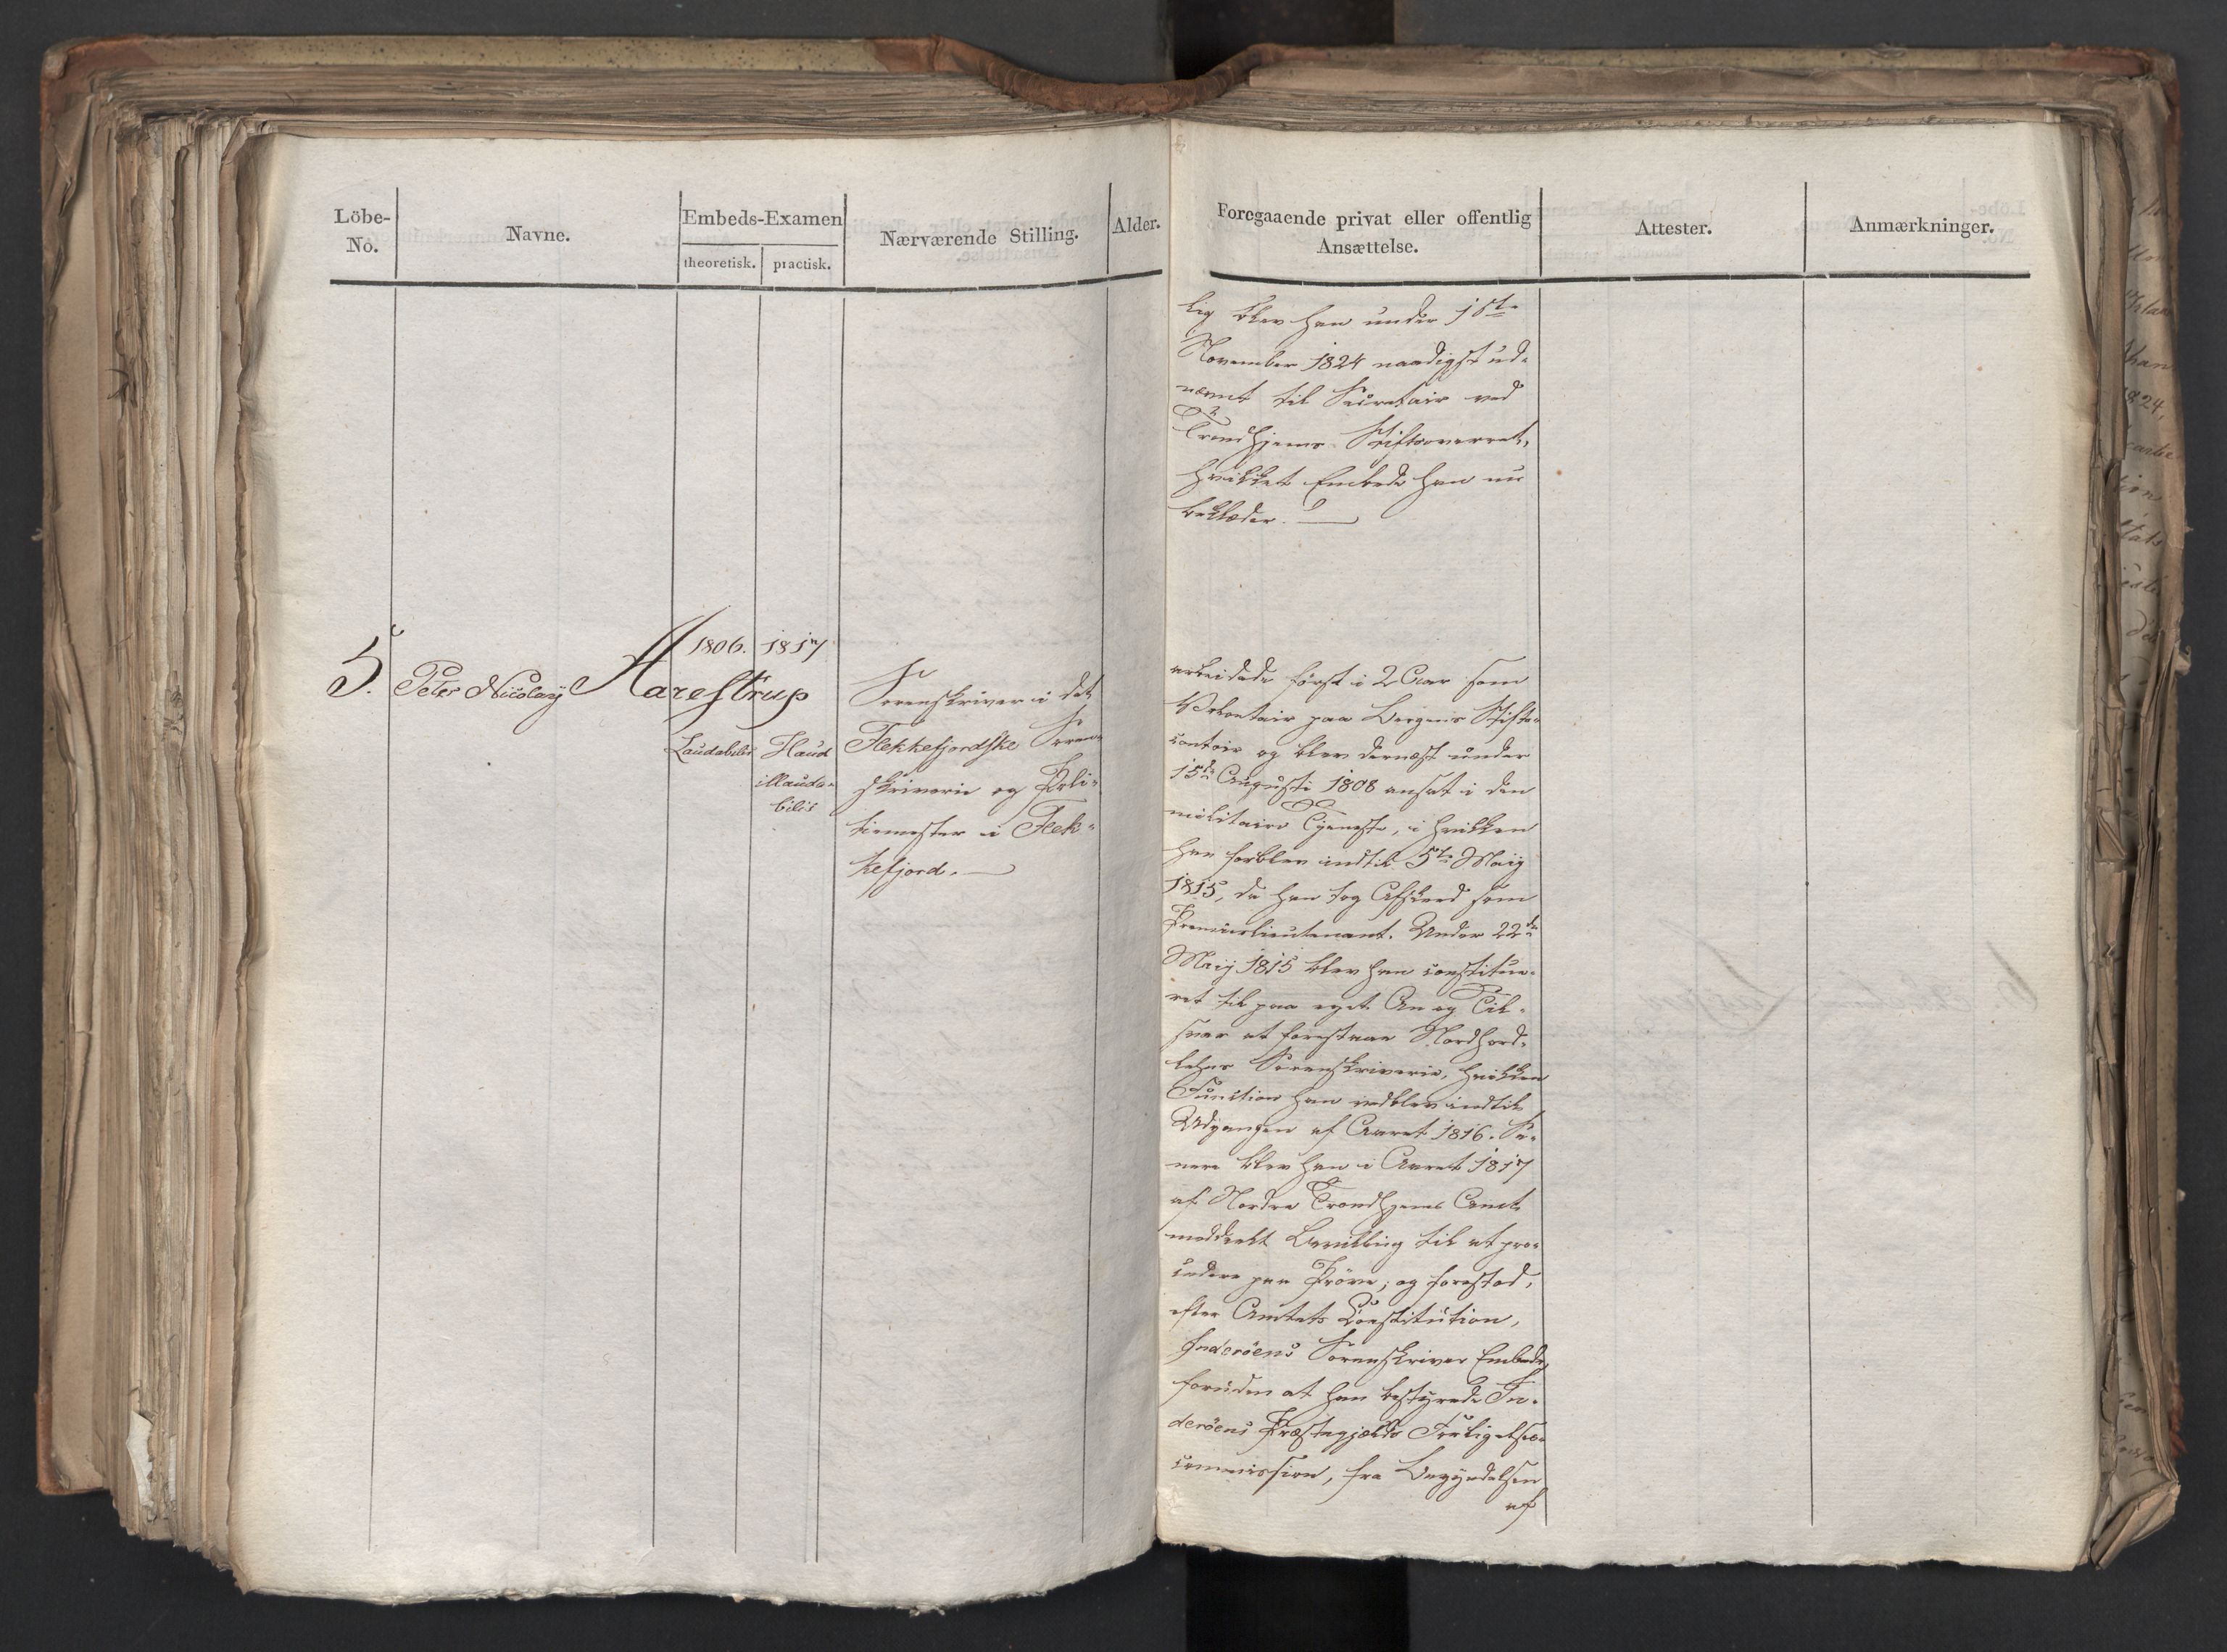 Löbe-
No.
Navne.
Embeds-Examen
theoretisk.
practisk.
Nærværende Stilling.
Alder.
5.
Peter Nicolay Aarestrup
1806.
Laudabilis
1817
Haud
illauda-
bilis
Sorenskriver i det
Flekkefjordske Soren-
skriverie og Poli-
tiemester i Flek-
kefjord. —
Foregaaende privat eller offentlig
Ansættelse.
Attester.
Anmærkninger.
lig blev han under 1ste
November 1824 naadigst ud-
nævnt til Secretair ved
Trondhjems Stiftsoverret,
hvilket Embede han nu
beklæder. —
arbeidede först i 2 Aar som
Volontair paa Bergens Stifts-
contoir og blev dernæst under
15de Augusti 1808 ansat i den
militaire Tjeneste, i hvilken
han forblev indtil 5te Maij
1815, da han tog Afskeed som
Premierlieutenant. Under 22de
Maij 1815 blev han constitue-
ret til paa eget An og Til-
svar at forestaae Nordhord-
lehns Sorenskriverie, hvilken
Function han vedblev indtil
Udgangen af Aaret 1816. Se-
nere blev han i Aaret 1817
af Nordre Trondhjems Amt
meddeelt Bevilling til at pro-
cedere paa Pröve; og forestod,
efter Amtets Constitution,
Inderöens Sorenskriver Embede,
foruden at han bestyrede In-
deröens Præstegjælds Forligelses-
commission, fra Begyndelsen
af